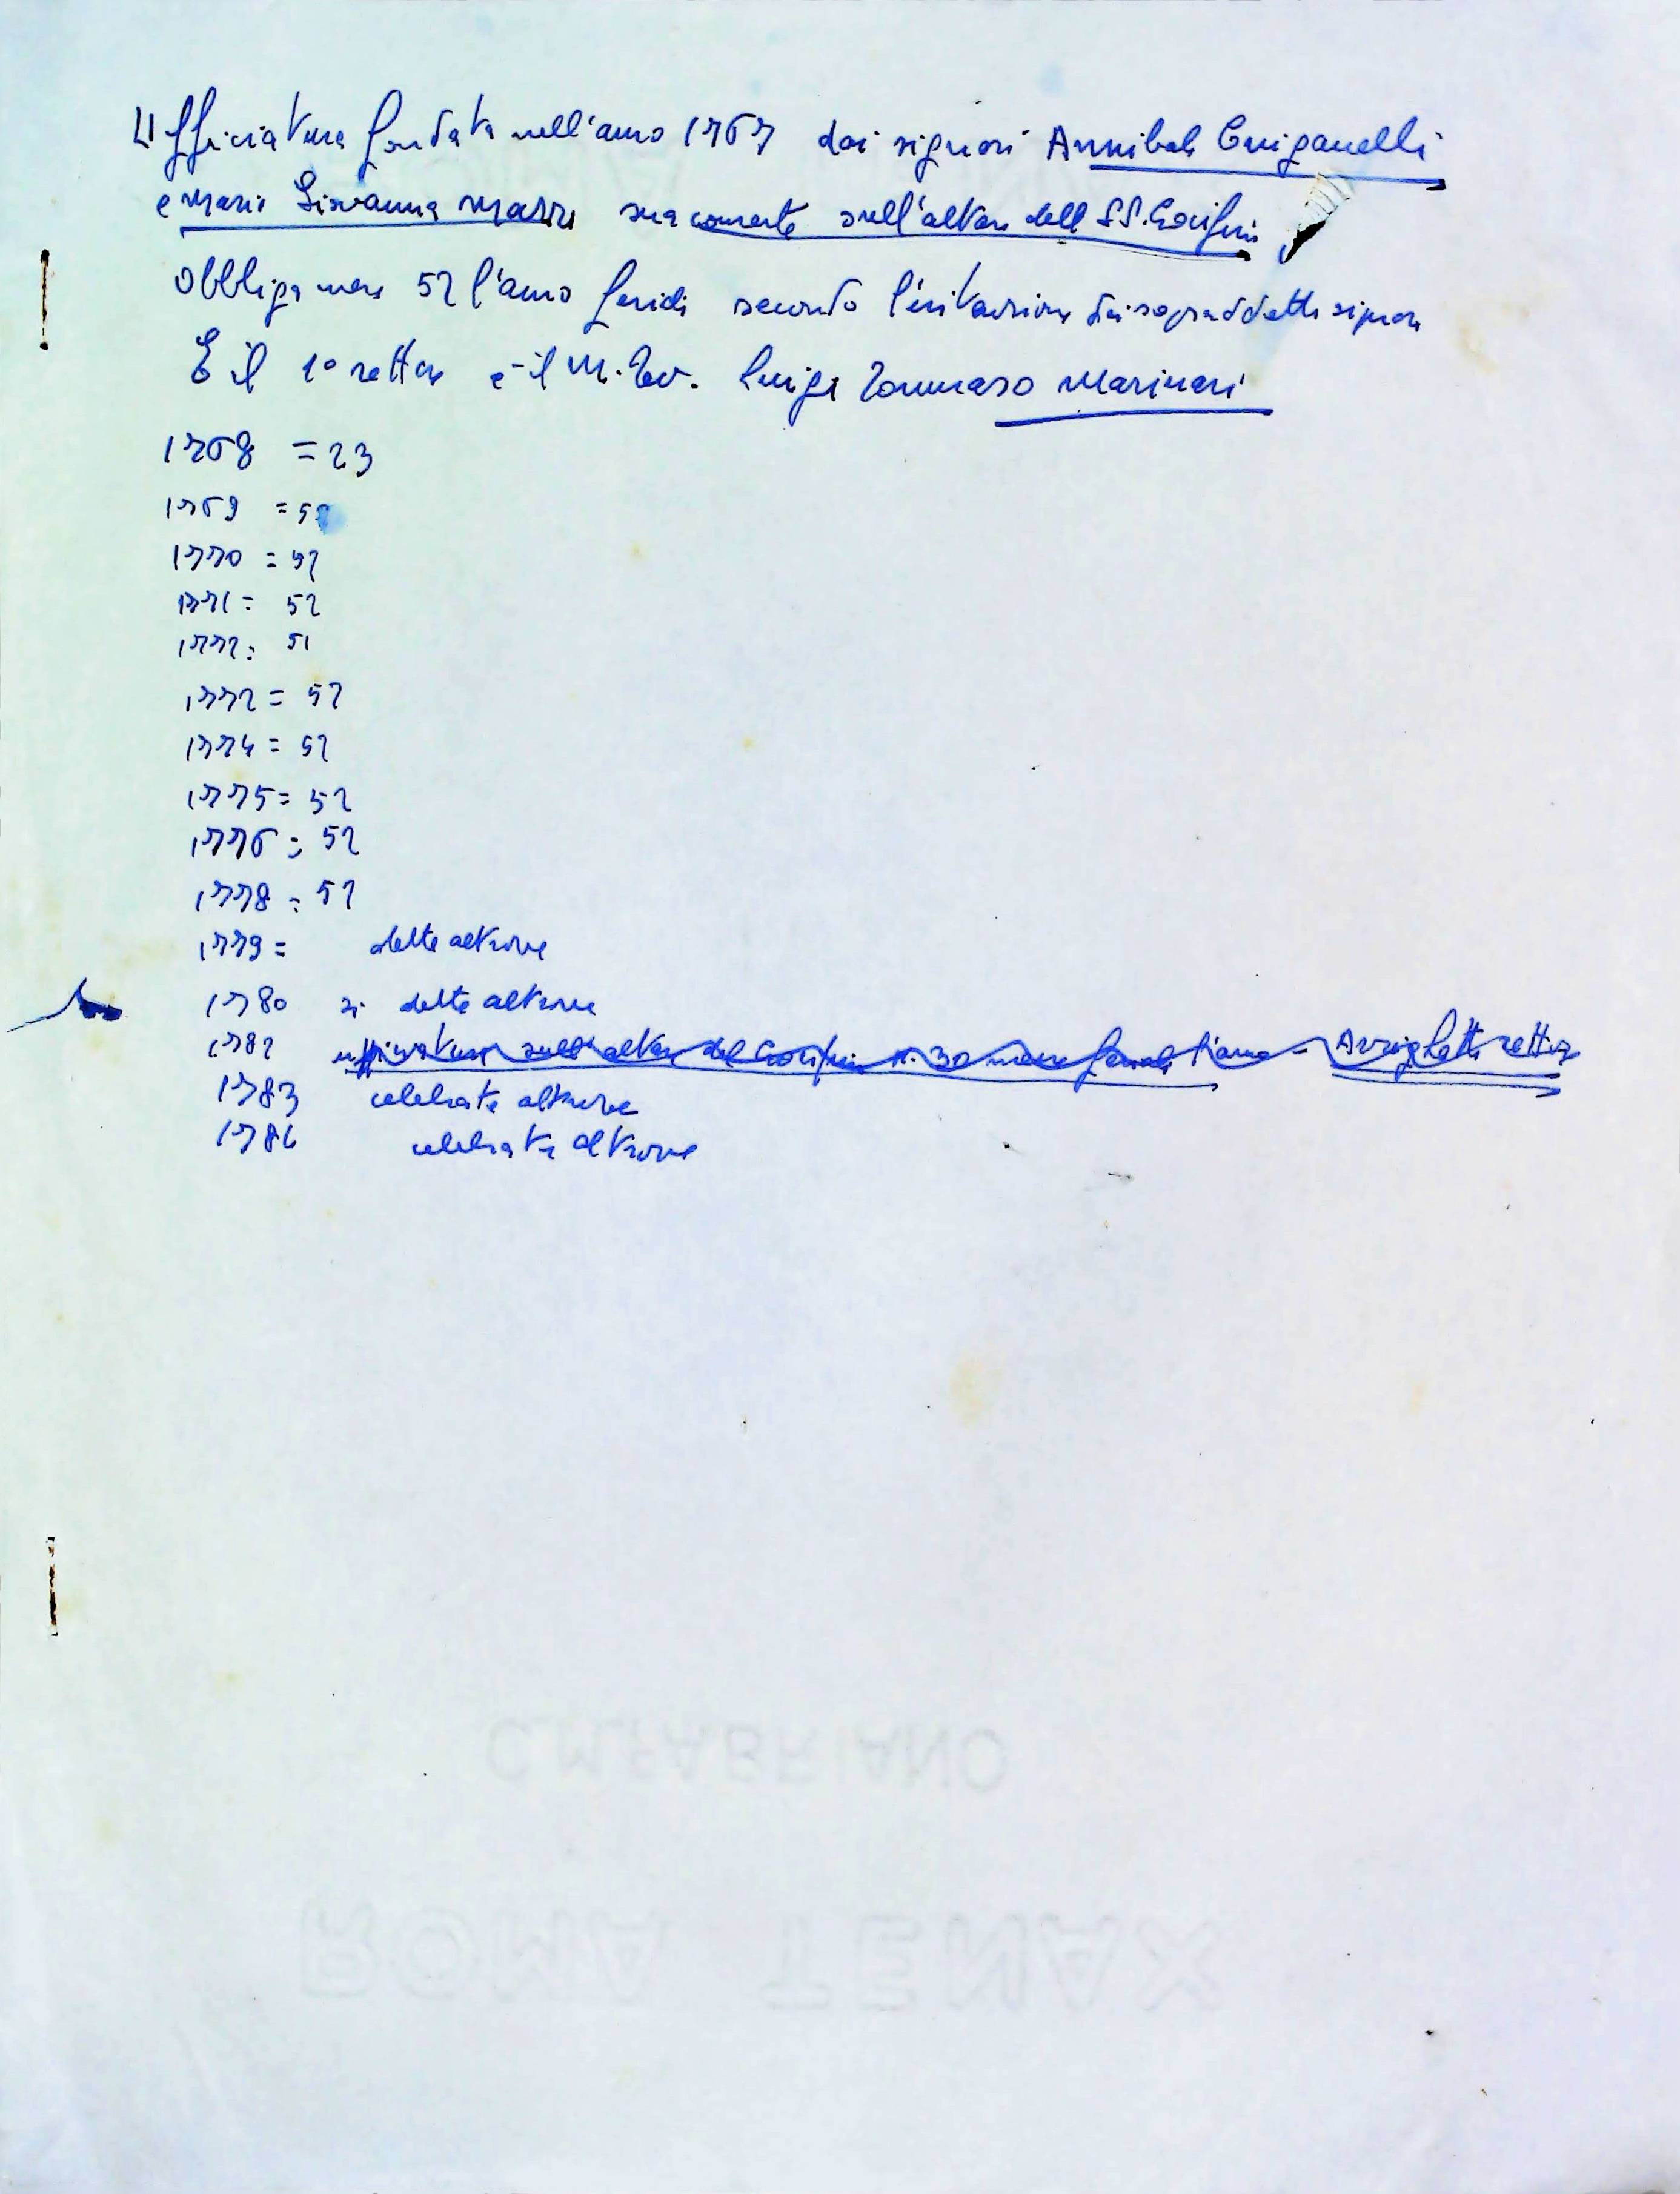 Ufficiatura fondata nell'anno 1767 dai signori Annibale
e Maria Giovanna Mazzi sua consorte sull'altare dell SS. Crocifisso
Obbligo messe 52 l'anno secondo l'intenzione dei sopraddetti signori
E il 1° rettore è il M. Rev. Luigi Tommaso Marinari
1768 = 23
1769 = 52
1770 = 52
1771 = 52
1772 = 51
1772 = 52
1774 = 52
1775 = 52
1776 = 52
1778 = 52
1779 = dette altrove
1780 si dette altrove
1782 ufficiatura sull'altare del Crocifisso n. 30 messe l'anno - Arrighetti rettore
1783 celebrate altrove
1784 celebrate altrove
C.M.FABRIANO
ROMA TENAX